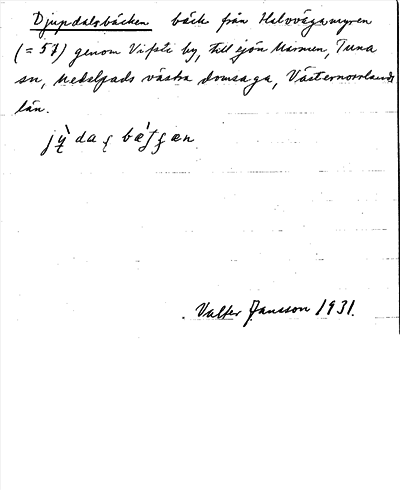 Djupdalsbäcken bäck från Helvägamyren
(= 51) genom Vifsta by, till sjön Marmen, Tuna
sn, Medelpads västra domsaga, Västernorrlands
län.
Valter Jansson 1931.